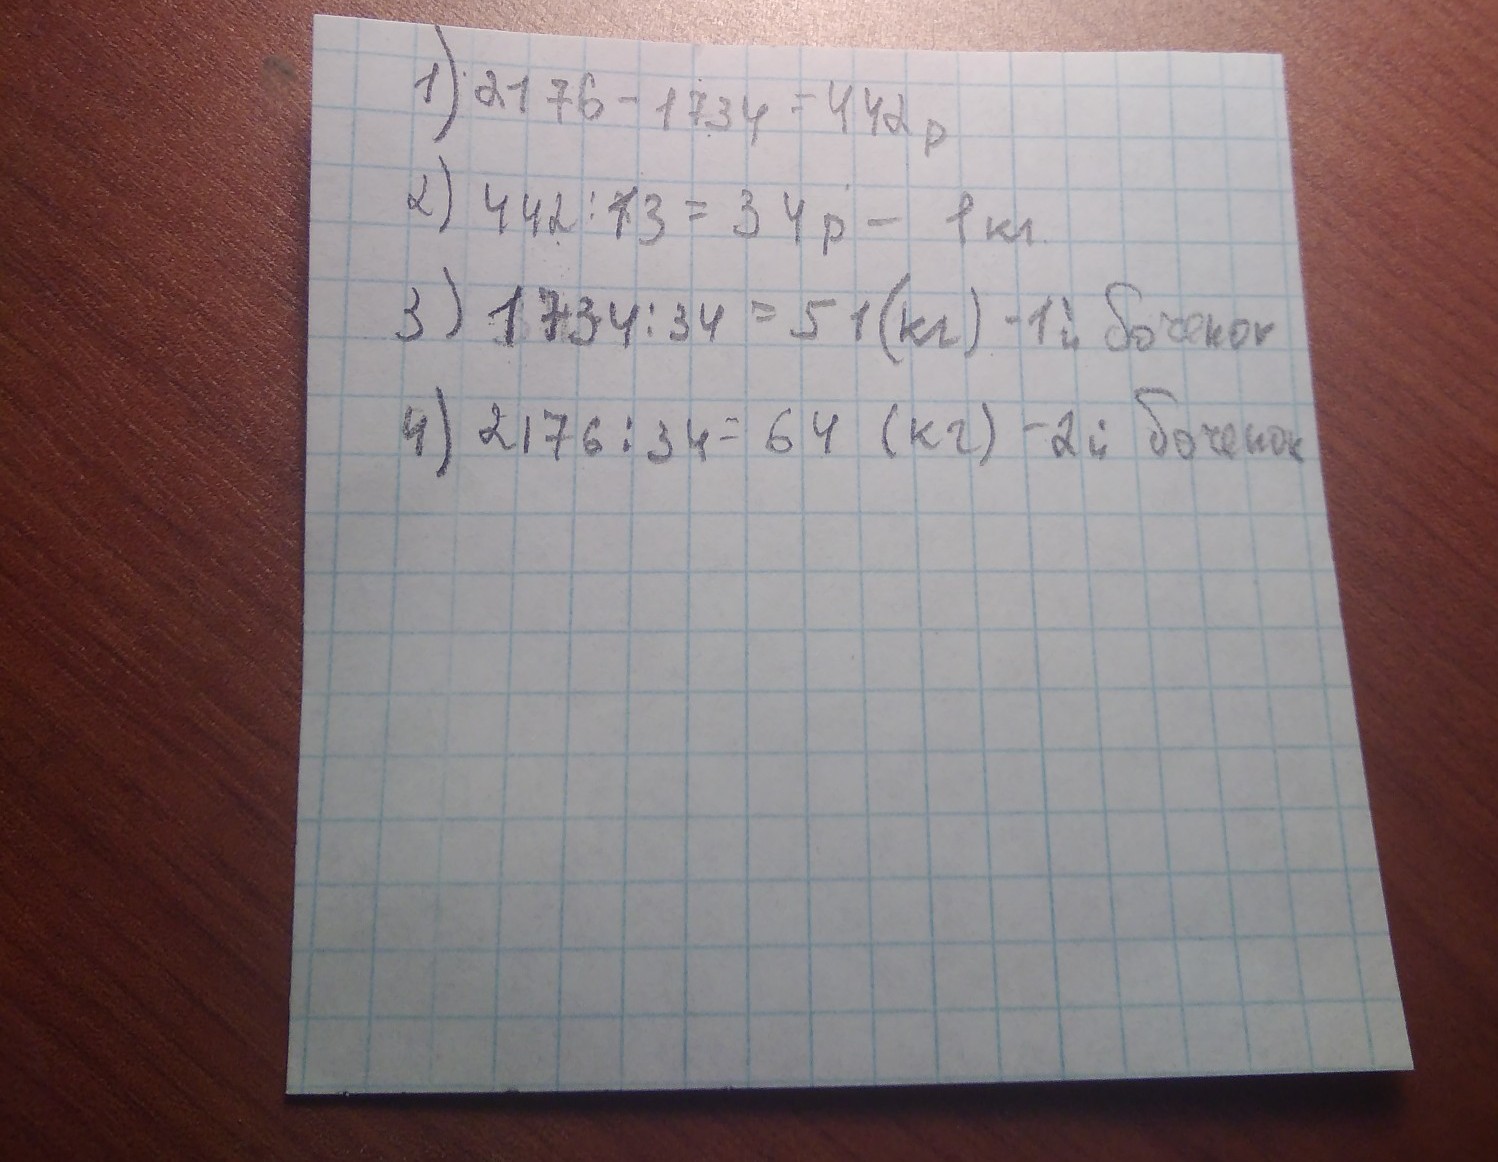 1) 2176 - 1734 = 442р
2) 442 : 13 = 34р - 1кг.
3) 1734 : 34 = 51 (кг) - 1й боченок
4) 2176 : 34 = 64 (кг) - 2й боченок